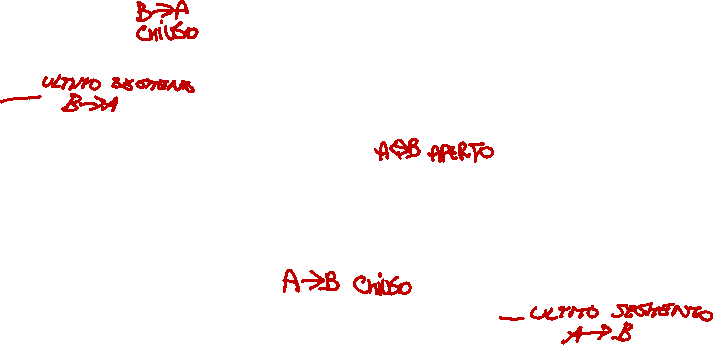 B→A
CHIUSO
ULTIMO SEGMENTO
B→A
A↔B APERTO
A→B CHIUSO
ULTIMO SEGMENTO
A→B